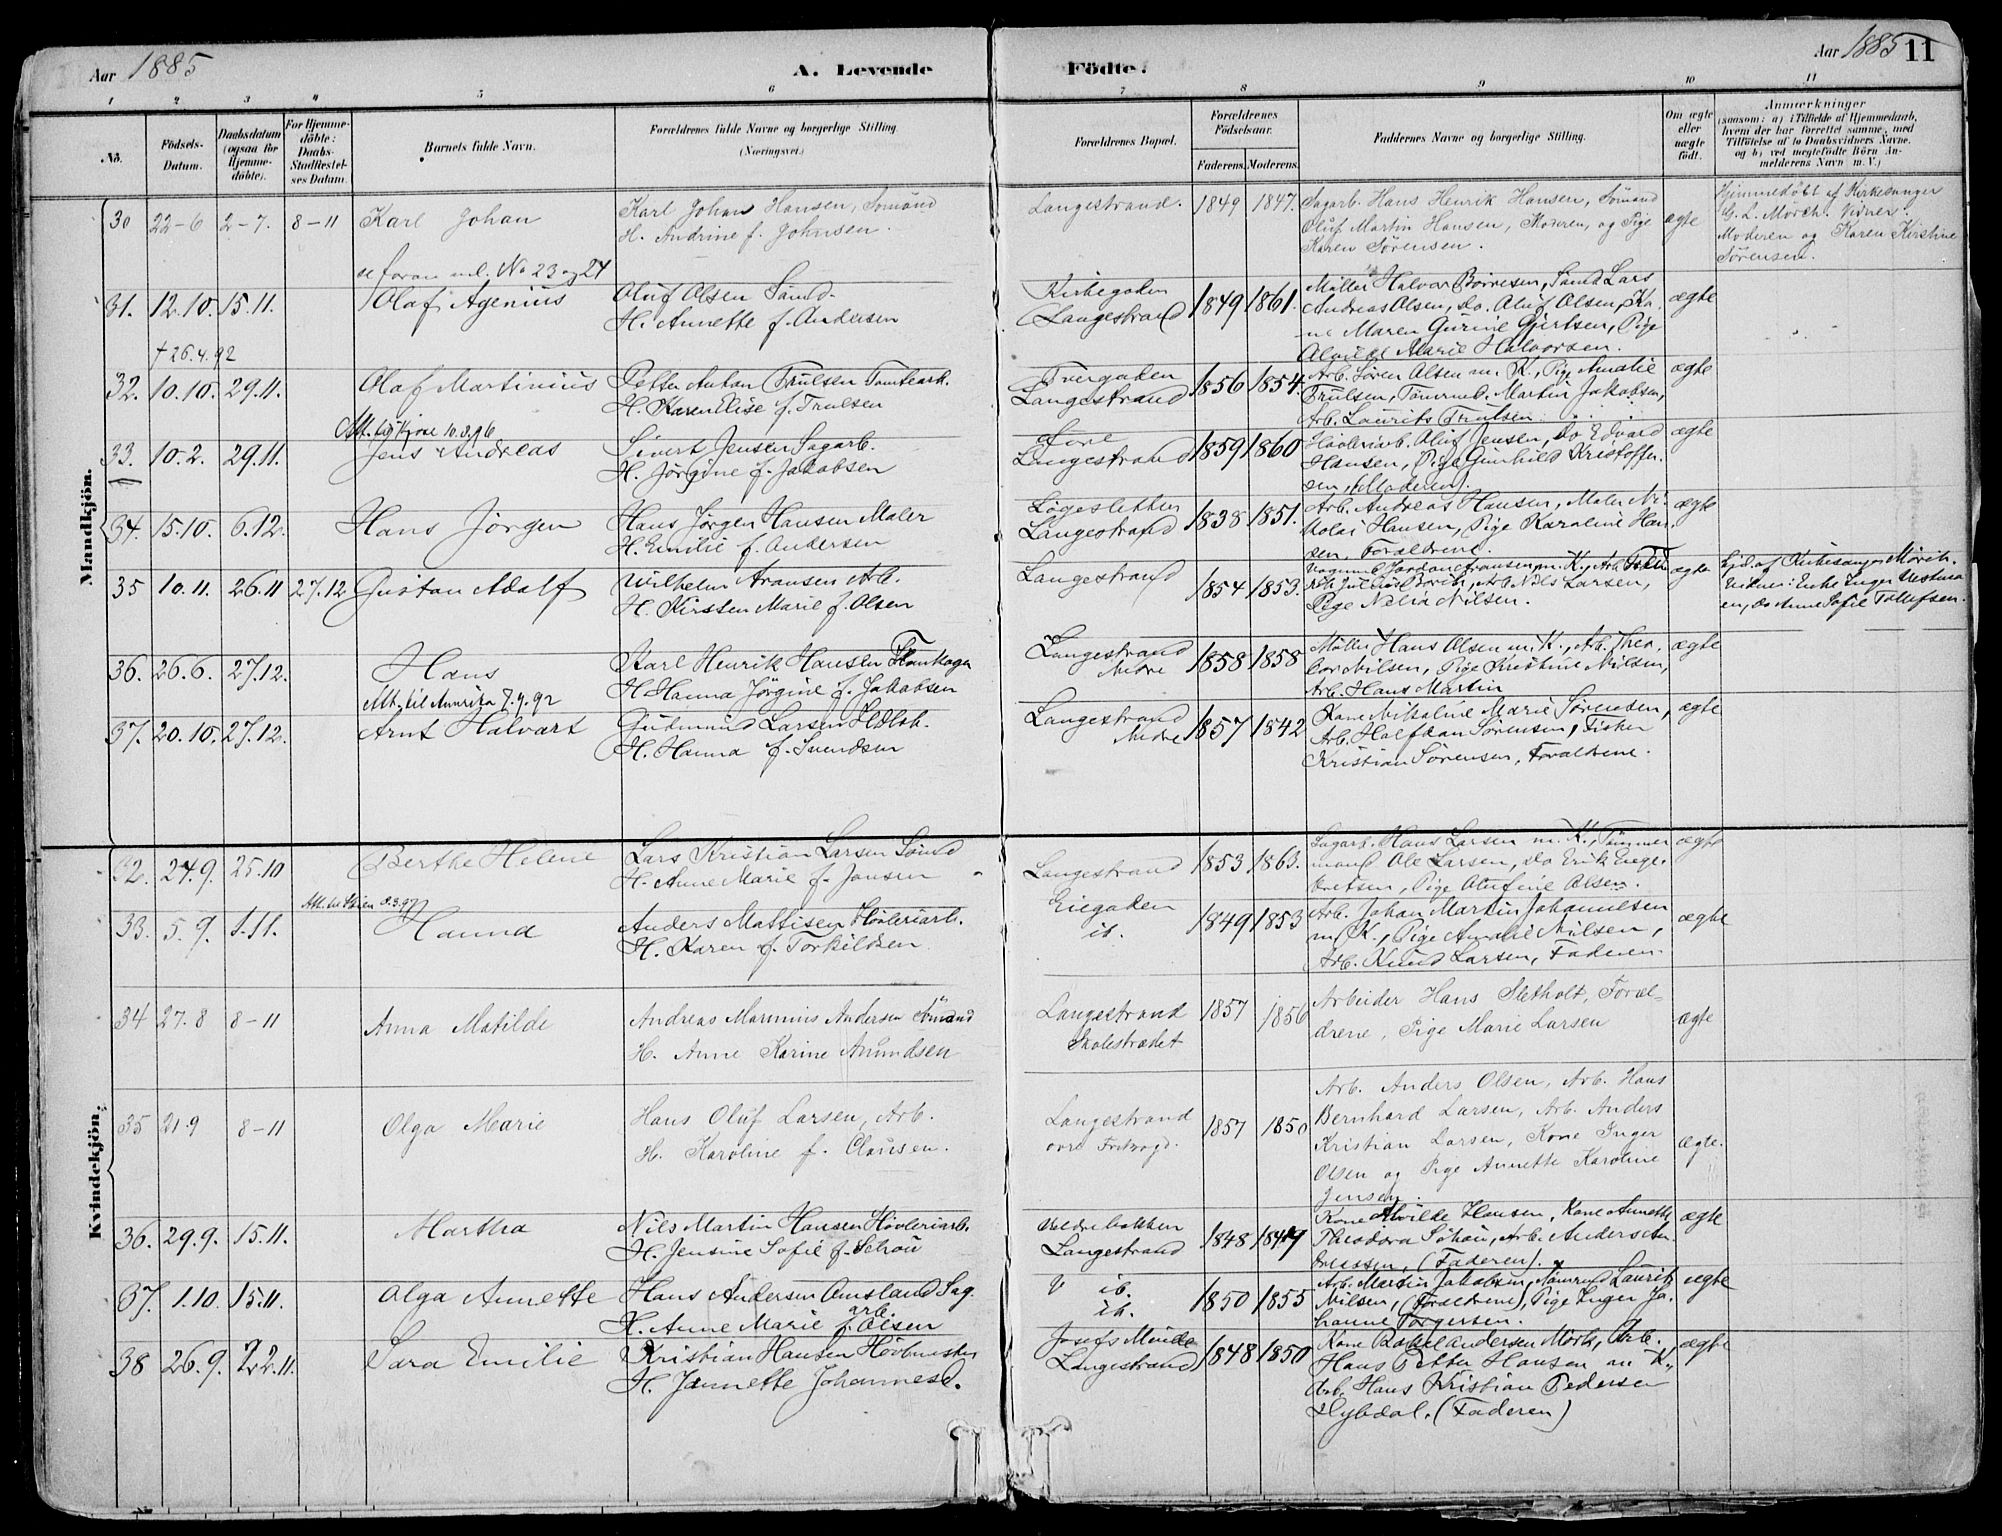 Aar 1885
A. Levende
Födte.
Aar 1885 11
1 2 3 4 5 6 7 8 9 10 11
No.
Födsels-Datum.
Daabsdatum (ogsaa for Hjemme-döbte).
For Hjemme-döbte: Daabs-Stadfæstel-ses Datum.
Barnets fulde Navn.
Forældrenes fulde Navne og borgerlige Stilling. (Næringsvei.)
Forældrenes Bopæl.
Forældrenes Födselsaar.
Faderens. Moderens.
Faddernes Navne og borgerlige Stilling.
Om ægte eller uægte födt.
Anmærkninger
(saasom: a) i Tilfælde af Hjemmedaab,
hvem der har forrettet samme, med
Tilföielse af to Daabsvidners Navne,
og b) ved uægtefödte Börn An-
melderens Navn m. V.)
Mandkjön.
30 22-6 2-7. 8-11 Karl Johan
Karl Johan Hansen, Sömand
H. Andrine f. Johnsen.
Langestrand. 1849 1847.
Sagarb. Hans Henrik Hansen, Sömand
Oluf Martin Hansen, Moderen, og Pige
Karen Sörensen.
ægte
Hjemmedöbt af Kirkesanger
G. L. Mörch. Vidner:
Moderen og Karen Kirstine
Sörensen.
se foran ved No 23 og 24
31. 12.10. 15.11. Olaf Agenius
Oluf Olsen Sömd.
H. Annette f. Andersen
Kirkegaden
Langestrand 1849 1861.
Möller Halvor Börresen, Sömd Lars
Andreas Olsen, Do. Oluf Olsen, Ko
ne Maren Gurine Gjertsen, Pige
Alvilde Marie Halvorsen.
ægte
† 26.4.92
32. 10.10. 29.11. Olaf Martinius
Petter Anton Trulsen Tomtearb.
H. Karen Elise f. Trulsen
Tvergaden
Langestrand 1856 1854.
Arb. Sören Olsen m. K., Pige Amalie
Trulsen, Tömmd. Martin Jakobsen,
Arb. Laurits Trulsen
ægte
33. 10.2. 29.11. Jens Andreas
Sivert Jensen Sagarb.
H. Jörgine f. Jakobsen
Langestrand 1859 1860
Hövleriarb. Oluf Jensen, Do Edvard
Hansen, Pige Gunhild Kristoffer-
sen, (Moderen).
ægte
34. 15.10. 6.12. Hans Jörgen
Hans Jörgen Hansen Maler
H. Emilie f. Andersen
Lögesletten
Langestrand 1838 1851.
Arb. Andreas Hansen, Maler Ni-
kolai Hansen, Pige Karoline Han-
sen, Forældrene.
ægte
35 10.11. 26.11 27.12 Gustav Adolf
Wilhelm Aronsen Arb.
H. Kirsten Marie f. Olsen
Langestrand 1854 1853.
Arb. Nils Larsen,
Pige Nelia Nilsen.
ægte
Hjd. af Kirkesanger Mörch.
Vidner: Enke Inger
Do Anne Sofie Tollefsen.
36. 26.6. 27.12. Hans
Karl Henrik Hansen
H. Hanna Jörgine f. Jakobsen
Langestrand
Nedre 1858 1858
Möller Hans Olsen m. K., Arb. Theo-
dor Nilsen, Pige Kristine Nilsen,
Arb. Hans Martin
ægte
Att. til Amerika 7.4.92
37. 20.10. 27.12. Arnt Halvart
Gudmund Larsen
H. Hanna f. Svendsen
Langestrand
Nedre 1857 1842
Kone Nikoline Marie Sörensen,
Arb. Halfdan Sörensen, Fisker
Kristian Sörensen, Forældrene.
ægte
Kvindekjön.
32. 24.9. 25.10 Berthe Helene
Lars Kristian Larsen Sömd
H. Anne Marie f. Jansen
Langestrand 1853 1863.
Sagarb. Hans Larsen m. K., Tömmer
mand Ole Larsen, Do Erik Enge-
bretsen, Pige Olufine Olsen.
ægte
Att. til Skien 8.3.97
33. 5.9. 1.11. Hanna
Anders Mattisen Hövleriarb.
H. Karen f. Torkildsen
Eiegaden
ib. 1849 1853
Arb. Johan Martin Johannesen
m. K., Pige Amalie Nilsen,
Arb. Knud Larsen, Faderen.
ægte
34 27.8 8-11 Anna Matilde
Andreas Marinius Andersen Sömand
H. Anne Karine Amundsen
Langestrand
Skolestrædet 1857 1856
Arbeider Hans Sletholt, Foræl-
drene, Pige Marie Larsen
ægte
35 21.9 8-11 Olga Marie
Hans Oluf Larsen, Arb.
H. Karoline f. Clausen.
Langestrand
övre Fritzögd. 1857 1850
Arb. Anders Olsen, Arb. Hans
Bernhard Larsen, Arb. Anders
Kristian Larsen, Kone Inger
Olsen og Pige Annette Karoline
Jensen.
ægte.
36. 29.9. 15.11. Martha
Nils Martin Hansen Hövleriarb.
H. Jensine Sofie f. Schou
Langestrand 1848 1849
Kone Alvilde Hansen, Kone Annette
Theodora Schou, Arb. Anders An-
dreassen, (Faderen).
ægte
37. 1.10. 15.11. Olga Annette
Hans Andersen Omsland Sag-
arb.
H. Anne Marie f. Olsen
ib.
ib. 1850 1855
Arb. Martin Jakobsen, Sömand Laurits
Nilsen, (Forældrene), Pige Inger Jo-
hanne Torgersen.
ægte
38 26.9. 22.11. Sara Emilie
Kristian Hansen Hövlmester
H. Jannette Johannesd.
Josefs Minde
Langestrand 1848 1850
Kone Rakel Andersen Mörk, Arb.
Hans Petter Hansen m K.,
Arb. Hans Kristian Pedersen
Hybdal. (Faderen)
ægte